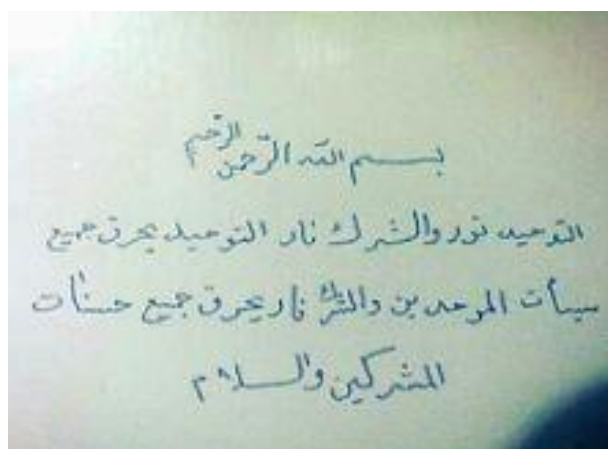 بسم الله الرحمن الرحيم
التوحيد نور والشرك نار التوحيد يحرق جميع
سيأت الموحدين والشرك نار يحرق جميع حسنات
المشركين والسلام